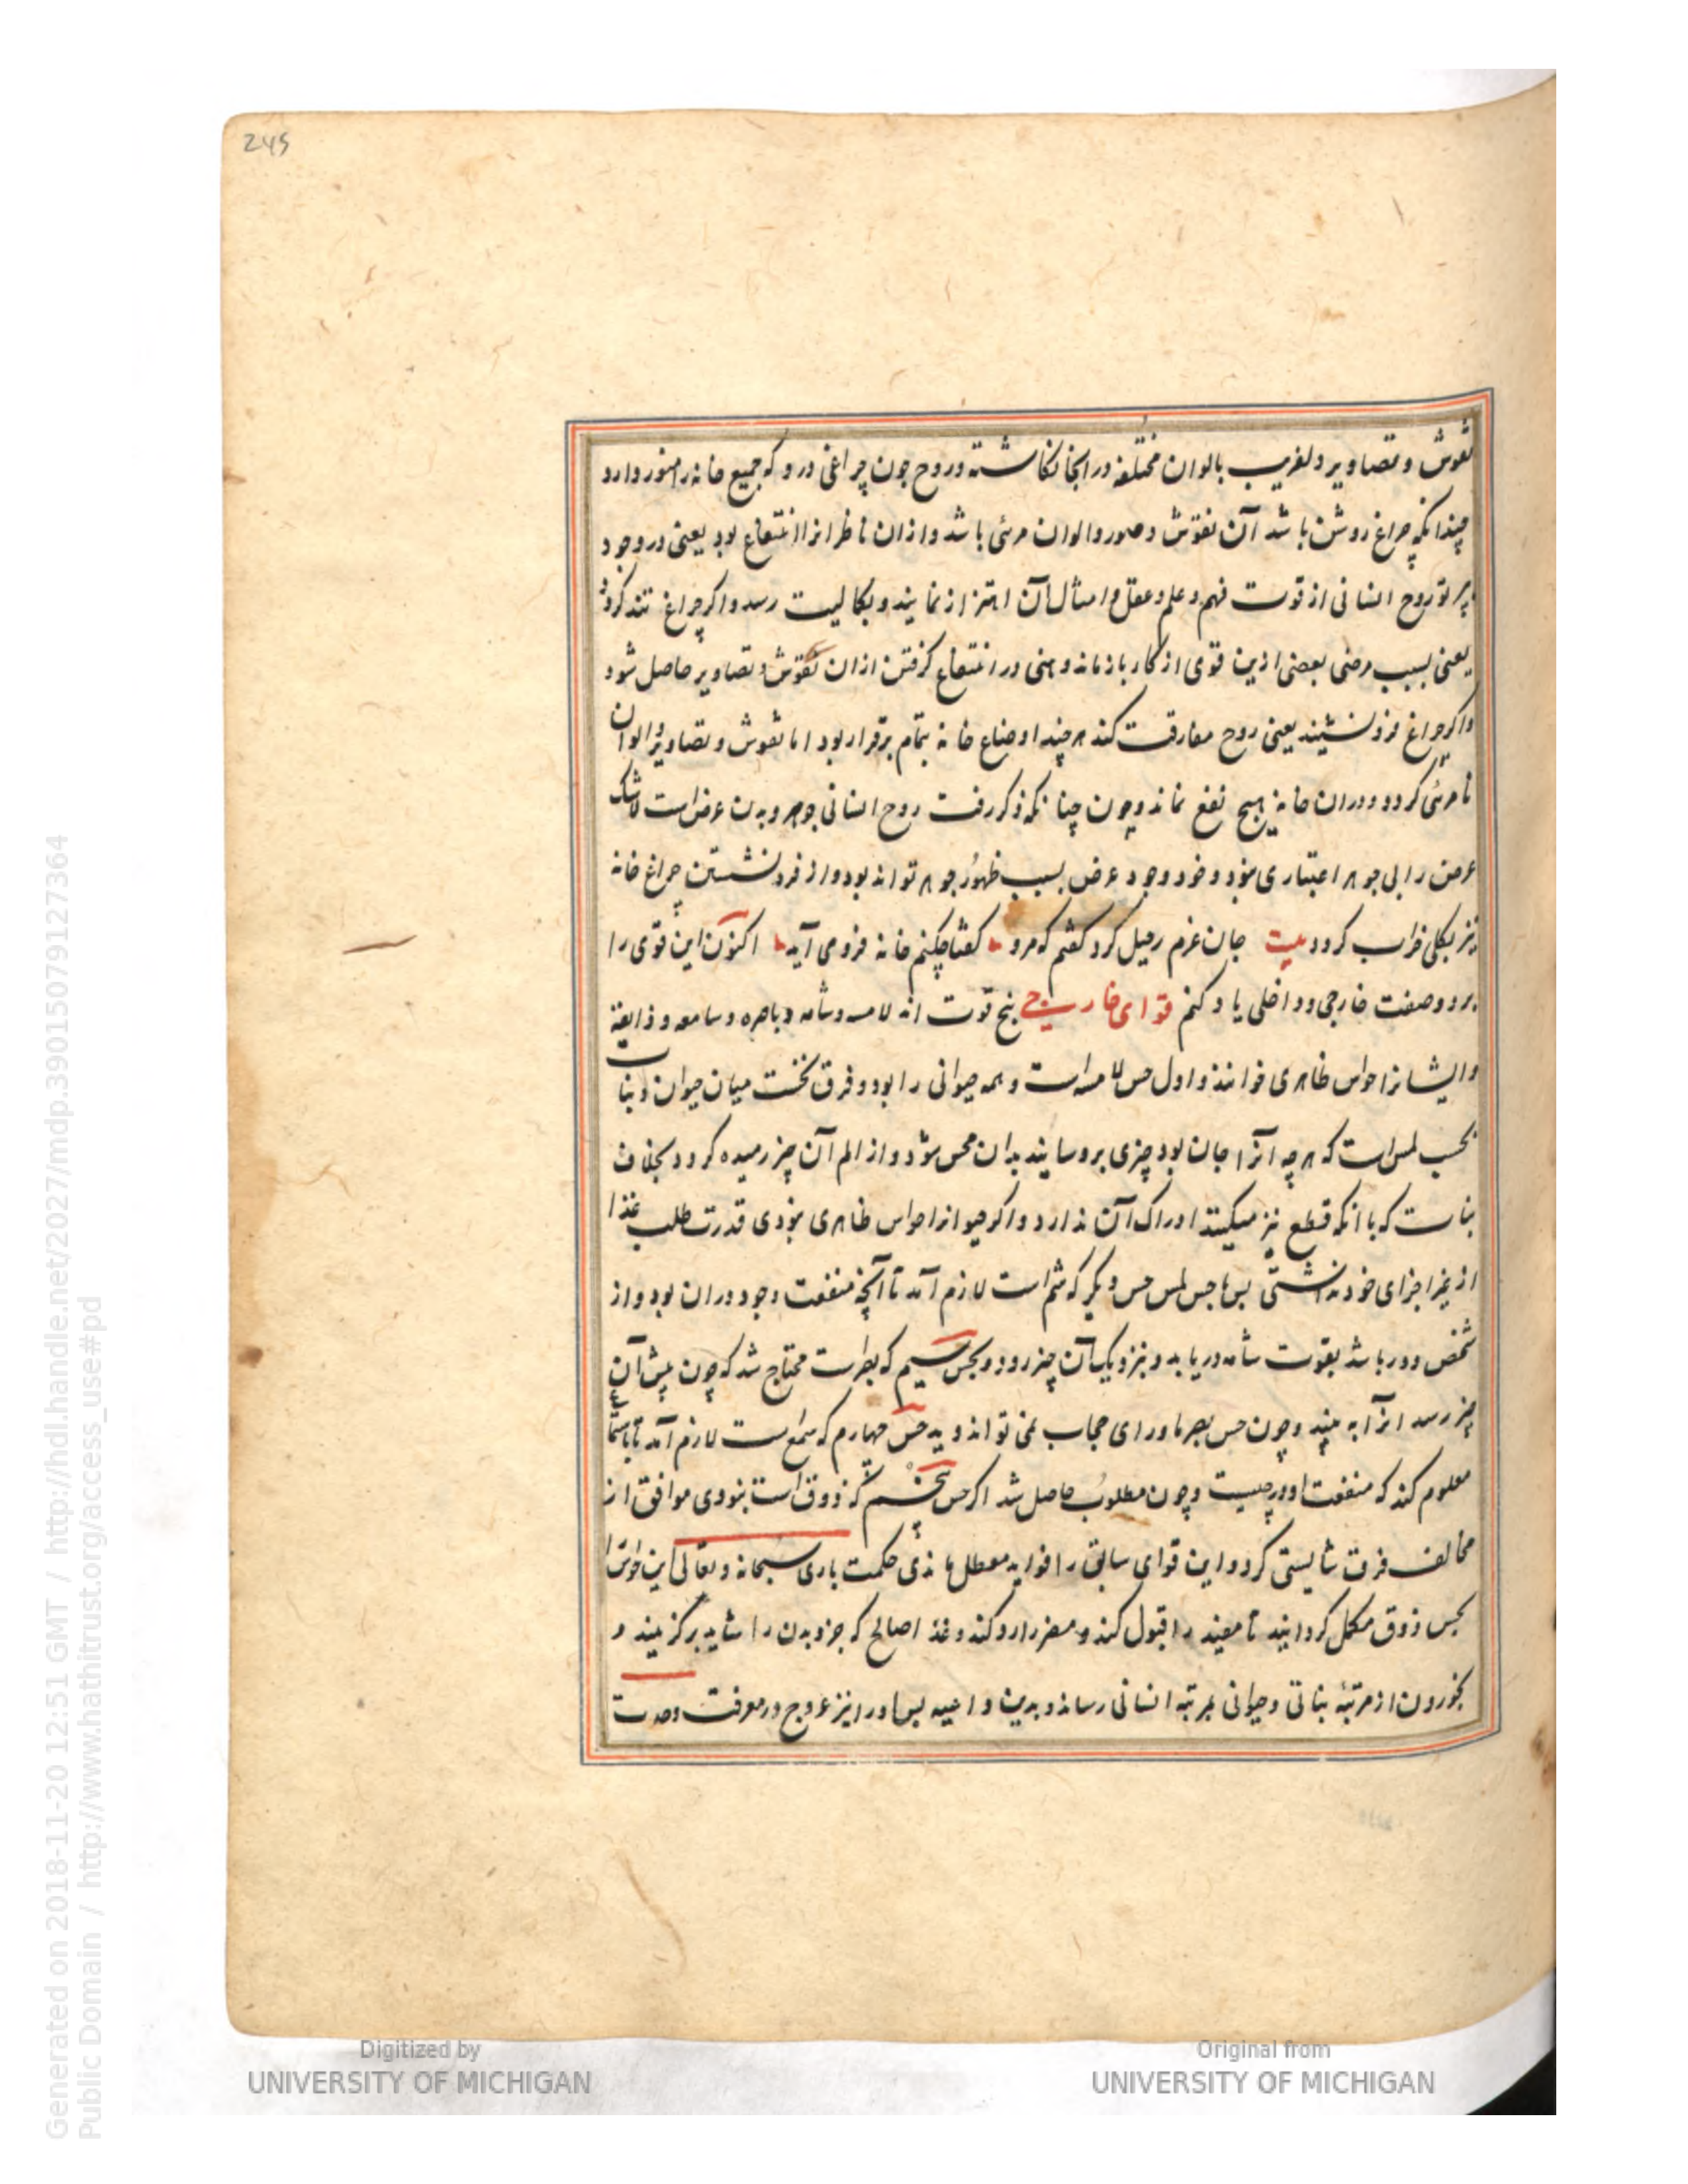 245
نقوش و تصاویر دلفریب بالوان مختلفه در انجا نکاشته و روح چون چراغی درو که جمیع خانه را منور دارد
چندانکه چراغ روشن باشد آن نقوش و صور و الوان مرئی باشد و ازان ناظرانرا انتفاع بود یعنی در وجود
پرتو روح انسانی از قوت فهم و علم و عقل و امثال آن اهتزاز نمایند و بکمالیت رسد و اکر چراغ تند کردد
یعنی بسبب مرضی بعضی ازین قوی از کار باز ماند وهنی در انتفاع کرفتن ازان نقوش و تصاویر حاصل شود
واکر چراغ فرو نشیند یعنی روح مفارقت کند هر چند اوضاع خانه بتمام برقرار بود اما نقوش و تصاویر و الوان
نامرئی کردد و دران خانه هیچ نفع نماند و چون چنانکه ذکر رفت روح انسانی جوهر و بدن عرض است لاشک
عرض را بی جوهر اعتباری نبود و خود وجود عرض بسبب ظهور جوهر تواند بود و از فرو نشستن چراغ خانه
نیز بکلی خراب کردد بیت جان عزم رحیل کرد کفتم که مرو کفتا چکنم خانه فرو می آید اکنون این قوی را
بر دو صفت خارجی و داخلی یاد کنم قوای خارجی پنج قوت اند لامسه و شامه و باصره و سامعه و ذایقه
و ایشانرا حواس ظاهری خوانند و اول حس لامسه است و همه حیوانی را بود و فرق نخست میان حیوان و نبات
بحسب لمس است که هر چه آنرا جان بود چیزی برو سایند بدان محس شود و از الم آن چیز رمیده کردد بخلاف
نبات که با آنکه قطع نیز میکنند ادراک آن ندارد و اکر حیوانرا حواس ظاهری نبودی قدرت طلب غذا
از غیر اجزای خود نداشتی پس بحس لمس حس دیکر که شم است لازم آمد تا آنچه منفعت وجود دران بود و از
شخص دور باشد بقوت شامه دریابد و بنزدیک آن چیز رود و بحس سیم که بصر است محتاج شد که چون پیش آن
چیز رسد آنرا به بیند و چون حس بصر ماورای حجاب نمی تواند دید حس چهارم که سمع است لازم آمد تا باستماع
معلوم کند که منفعت او در چیست و چون مطلوب حاصل شد اکر حس پنجم که ذوق است نبودی موافق از
مخالف فرق نشایستی کرد و این قوای سابق را فواید معطل ماندی حکمت باری سبحانه و تعالی این حواسرا
بحس ذوق مکمل کردانید تا مفید را قبول کند و مضر را رد کند و غذا صالح که جزو بدن را شاید برکزیند و
بخوردن از مرتبه نباتی و حیوانی بمرتبه انسانی رساند و بدین داعیه پس او را نیز عروج در معرفت وحدت
Generated on 2018-11-20 12:51 GMT / http://hdl.handle.net/2027/mdp.39015079127364
Public Domain / http://www.hathitrust.org/access_use#pd
Digitized by
UNIVERSITY OF MICHIGAN
Original from
UNIVERSITY OF MICHIGAN